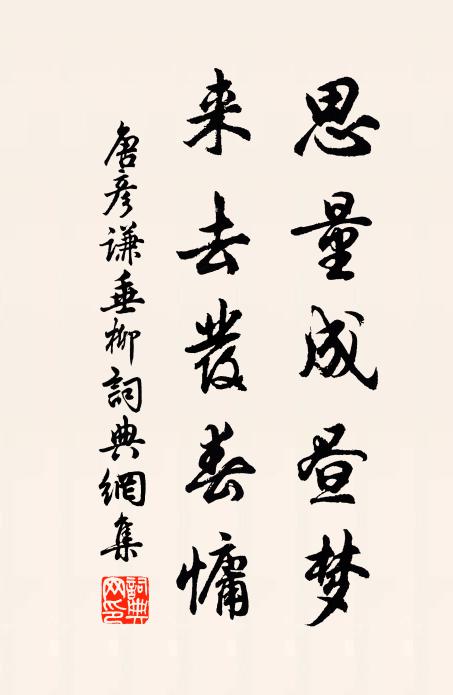 思量成昼梦
来去發春慵
唐彦谦垂柳詞典網集
詞典网印